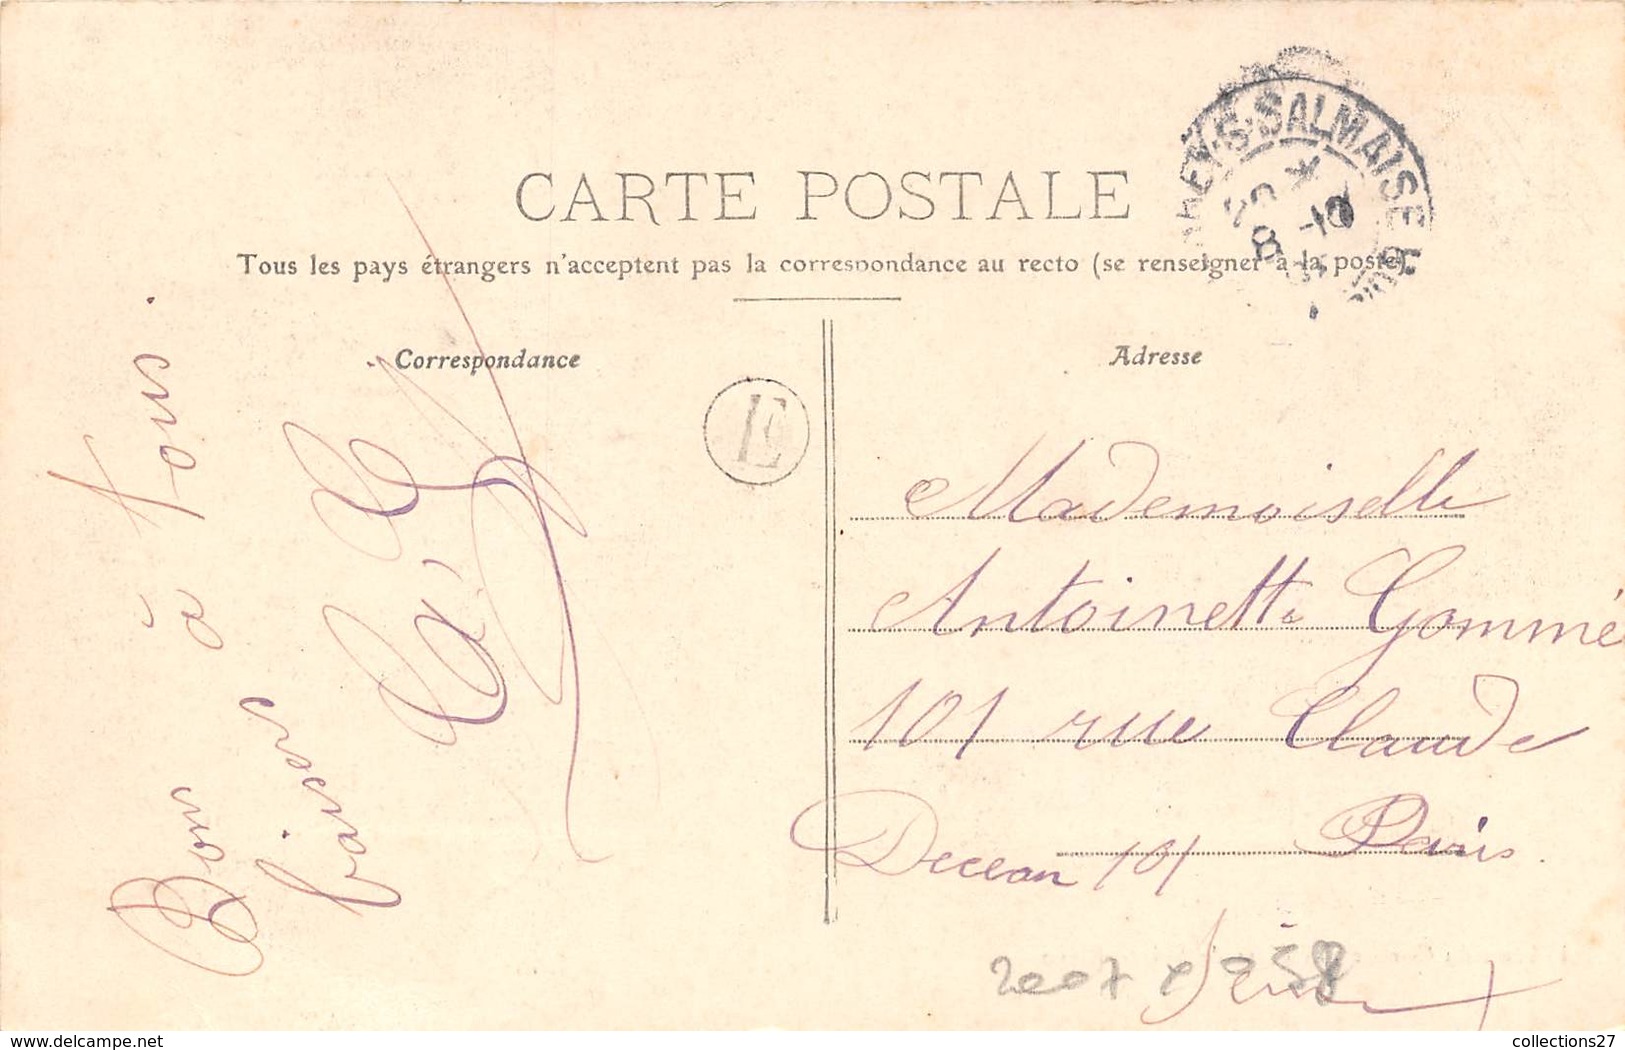 CARTE POSTALE
Tous les pays étrangers n'acceptent pas la correspondance au recto (se renseigner à la poste)
Correspondance
Adresse
S-SALMAISE
E
Bons
baisers
à tous.
Mademoiselle
Antoinette Gommé
101 rue Claude
Decean 101 Paris.
Seine
www.delcampe.net
collections27